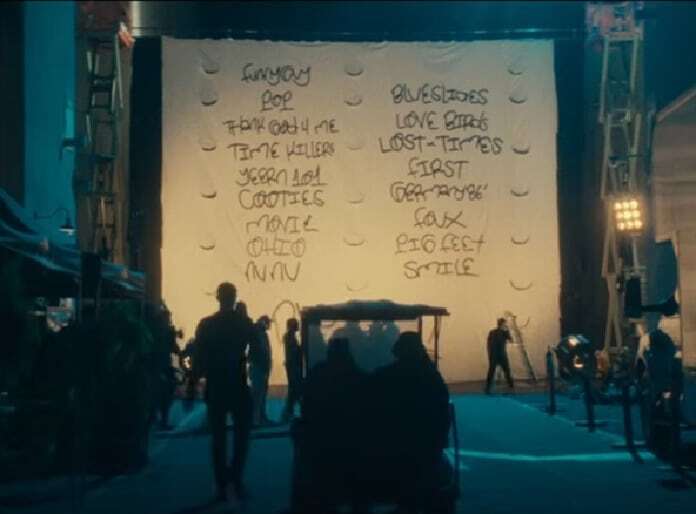 FUNNYGUY
POP
THANK GOD 4 ME
TIME KILLERS
YEERN 101
COOTIES
MOVIE
OHIO
NUNU
BLUESLIDES
LOVE BIRDS
LOST-TIMES
FIRST
GERMANY86'
FOUX
PIG FEET
SMILE